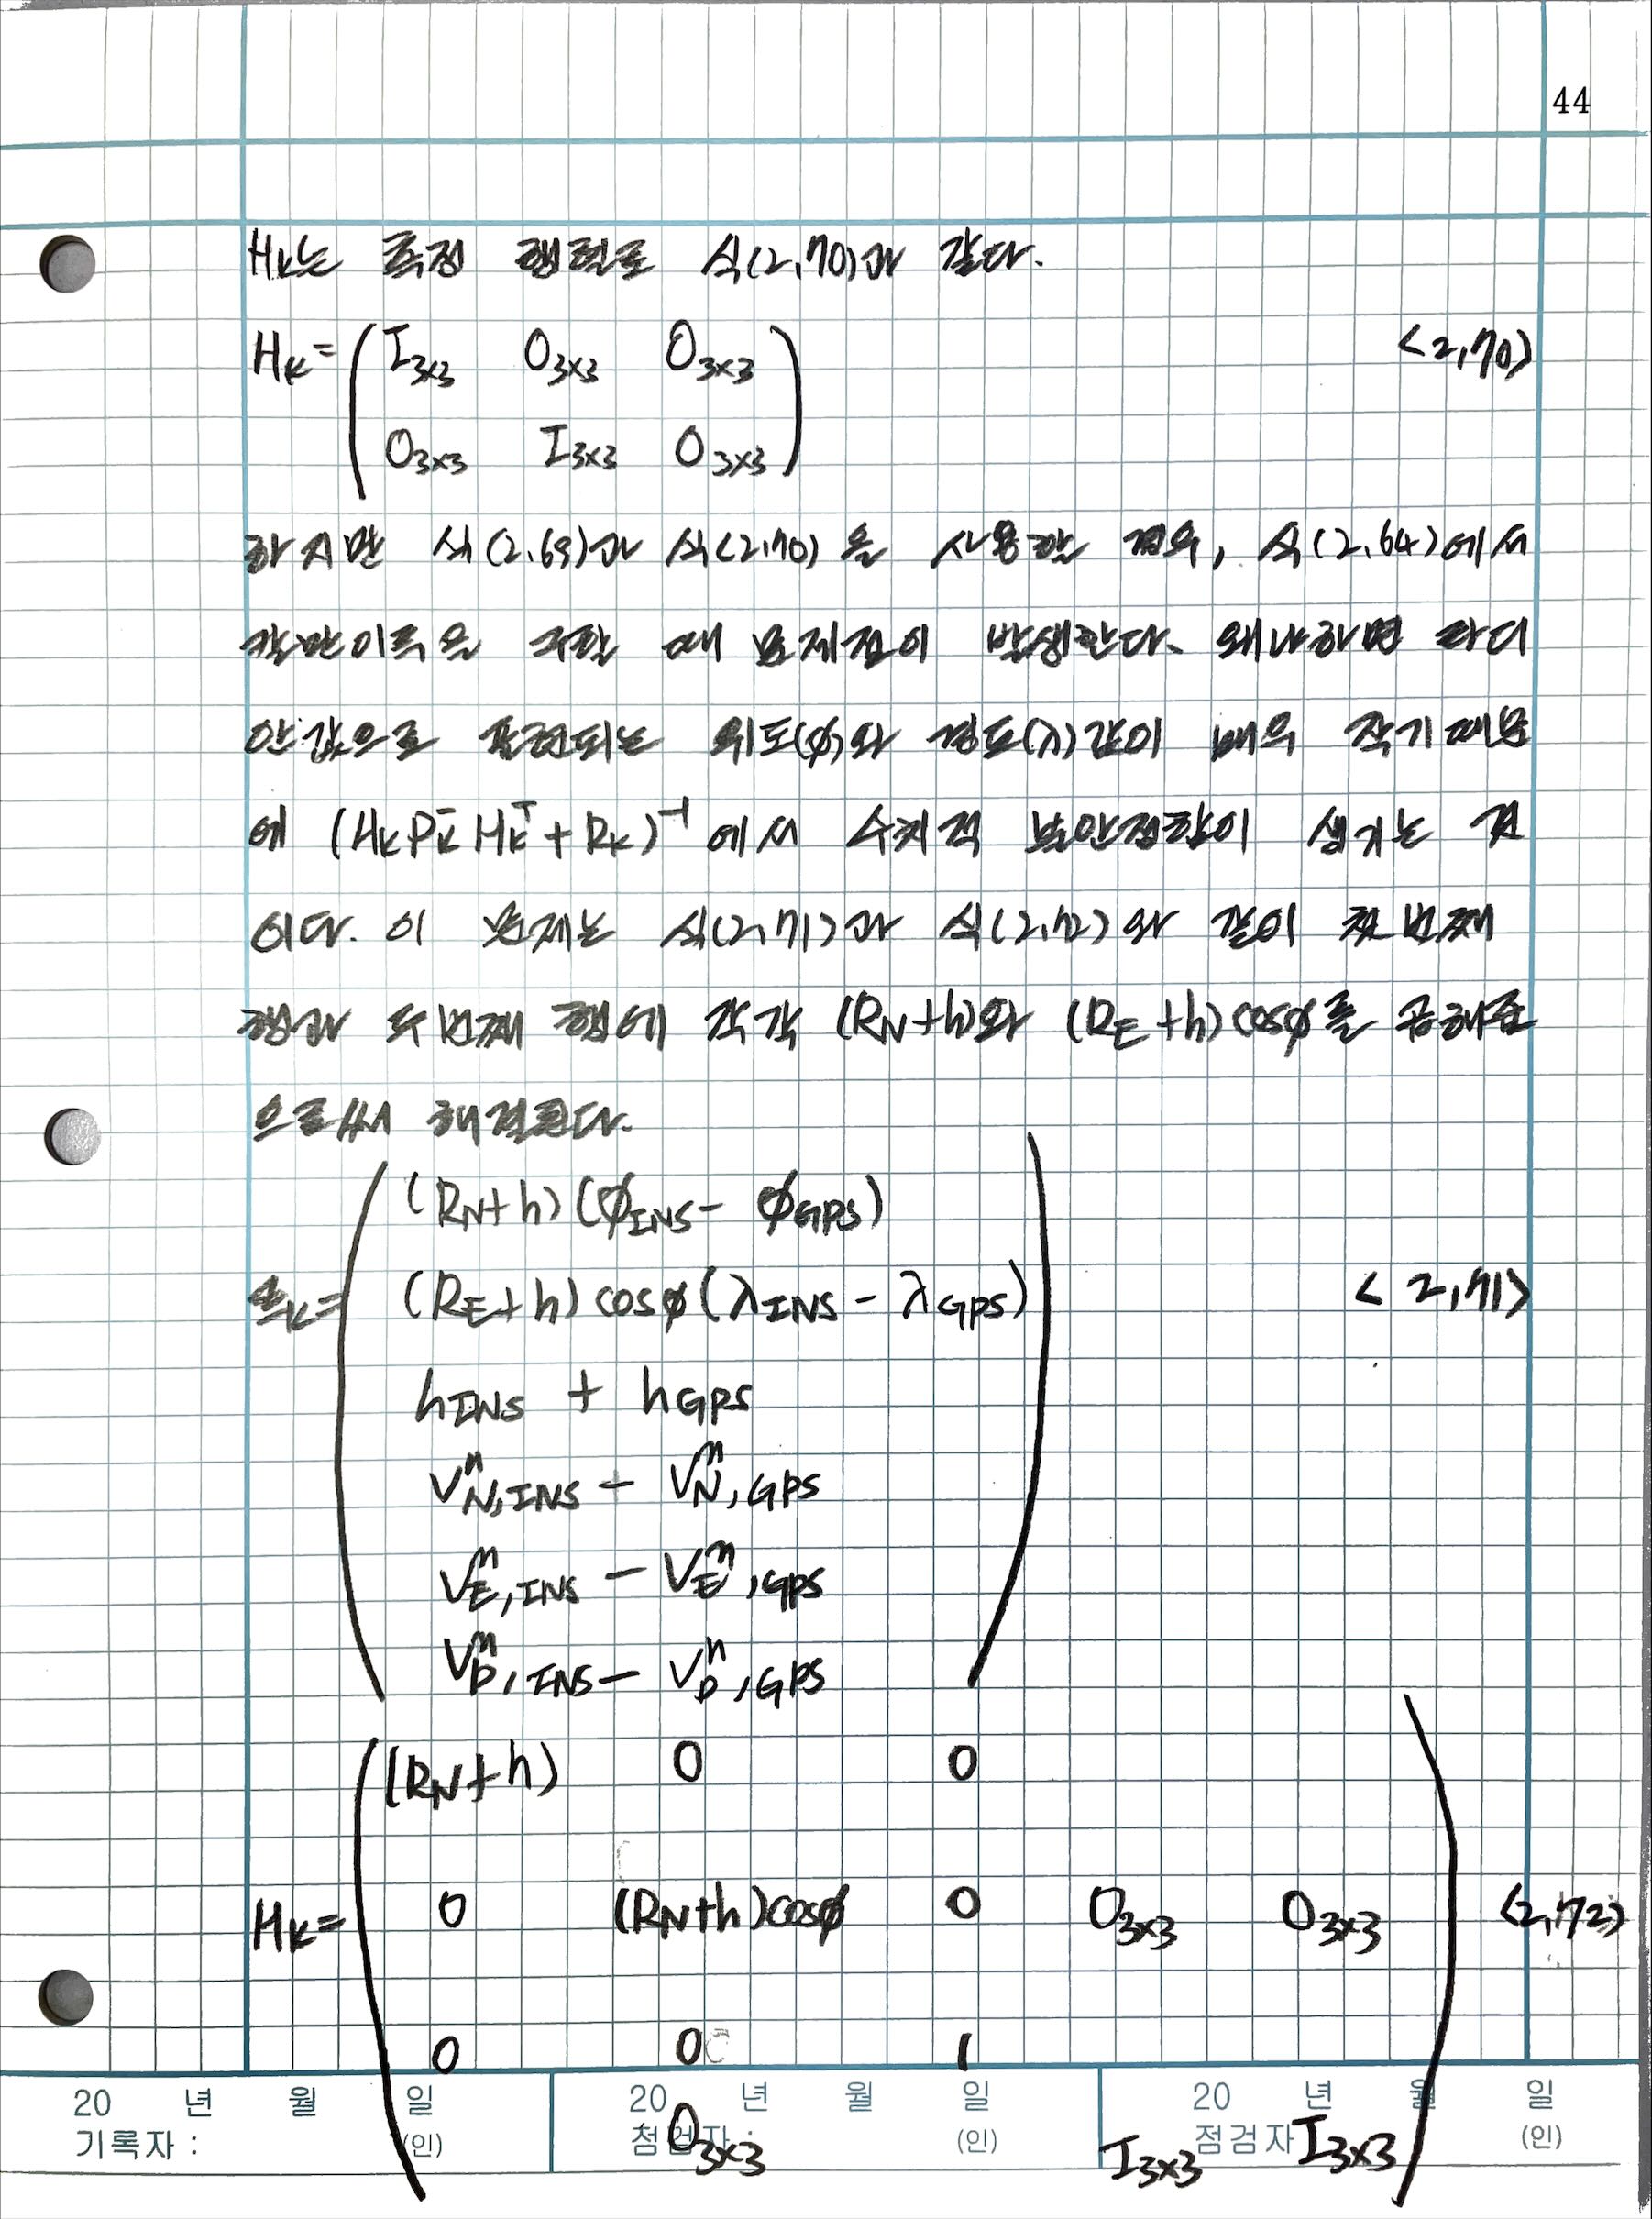 44
H_k는 측정 행렬로 식(2.70)과 같다.
H_k = ( I_3x3 O_3x3 O_3x3 <2.70)
O_3x3 I_3x3 O_3x3 )
하지만 식(2.69)과 식(2.70)을 사용할 경우, 식(2.64)에서
칼만이득을 구할 때 문제점이 발생한다. 왜냐하면 라디
안 값으로 표현되는 위도(φ)와 경도(λ)값이 매우 작기때문
에 (H_k P_k^- H_k^T + R_k)^-1 에서 수치적 불안정함이 생기는 것
이다. 이 문제는 식(2.71)과 식(2.72)와 같이 첫 번째
행과 두 번째 행에 각각 (R_N+h)와 (R_E+h)cosφ를 곱해줌
으로써 해결된다.
(R_N+h)(φ_INS - φ_GPS)
z_k = (R_E+h)cosφ(λ_INS - λ_GPS) <2.71>
h_INS + h_GPS
V^n_N,INS - V^n_N,GPS
V^n_E,INS - V^n_E,GPS
V^n_D,INS - V^n_D,GPS
(R_N+h) 0 0
H_k = 0 (R_N+h)cosφ 0 O_3x3 O_3x3 <2.72)
0 0 1
O_3x3 I_3x3 I_3x3
20 년 월 일 20 년 월 일 20 년 월 일
기록자 : (인) 점검자 : (인) 점검자 (인)